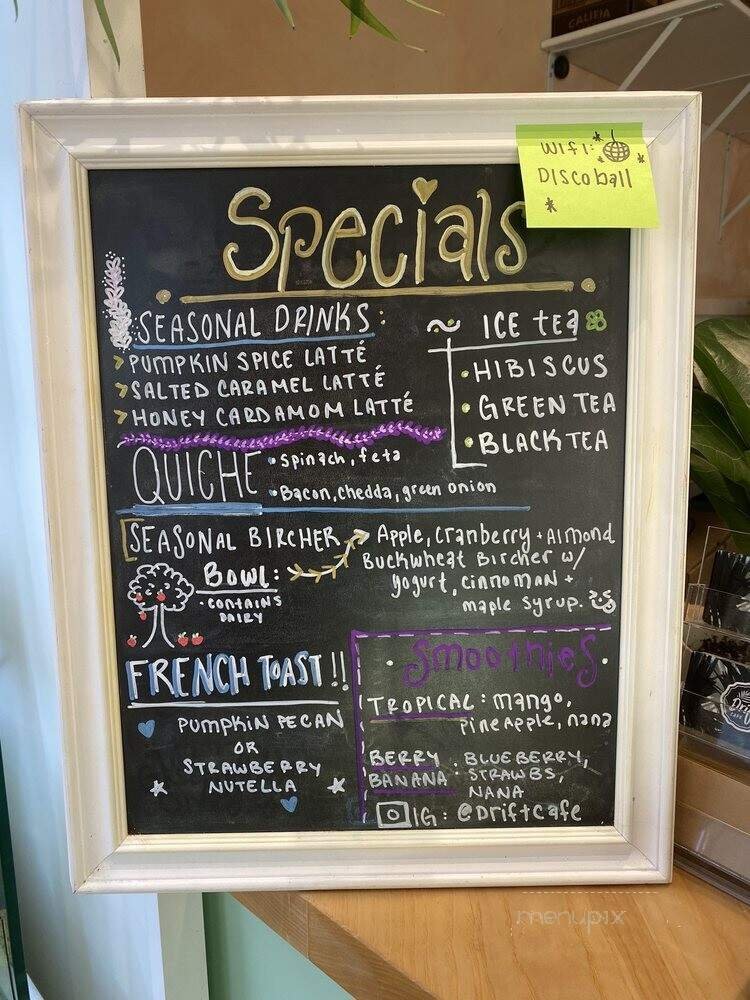 CALIFIA
WIFI:
DIScoball
Specials
SEASONAL DRINKS:
PUMPKIN SPICE LATTÉ
SALTED CARAMEL LATTÉ
HONEY CARDAMOM LATTÉ
ICE tea
HIBISCUS
GREEN TEA
BLACK TEA
QUICHE
• spinach, feta
• Bacon, chedda, green onion
SEASONAL BIRCHER
BOWL:
• CONTAINS
DAIRY
Apple, Cranberry + Almond
Buckwheat Bircher w/
yogurt, cinnoman +
maple syrup.
FRENCH TOAST!!
PUMPKIN PECAN
OR
STRAWBERRY
NUTELLA
• Smoothies •
TROPICAL: mango,
pineapple, nana
BERRY
BANANA : BLUEBERRY,
STRAWBS,
NANA
IG: @Driftcafe
Drift
menupix